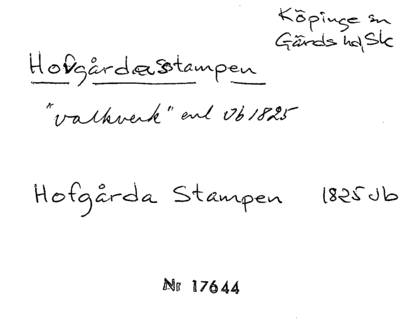 Köpinge sn
Gärds hd, Sk
Hovgårdasstampen
"valkverk" enl Jb 1825
Hofgårda Stampen 1825 Jb
Nr 17644